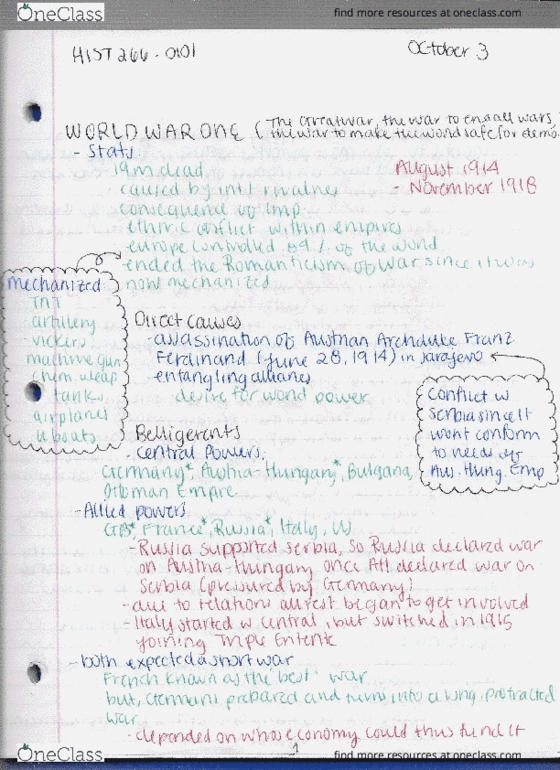 OneClass
find more resources at oneclass.com
HIST 266-0101
October 3
WORLD WAR ONE (The Great war, the war to end all wars,
the war to make the world safe for demo
- Stats
19m dead
August 1914
caused by int'l rivalries
- November 1918
consequence of Imp.
ethnic conflict within empires
europe controlled 84% of the world
ended the Romanticism of War since it was
now mechanized
mechanized
TNT
artillery
vickers
machine gun
chem. weap
tanks
airplanes
uboats
Direct causes
- assassination of Austrian Archduke Franz
Ferdinand (June 28, 1914) in Sarajevo
- entangling alliances
desire for world power
Conflict w
Serbia since it
wont conform
to needs of
Aus. Hung. Emp
Belligerents
- Central Powers.
Germany*, Austria-Hungary*, Bulgaria,
Ottoman Empire
- Allied powers
GB*, France*, Russia*, Italy, US
- Russia supported Serbia, so Russia declared war
on Austria-Hungary once AH declared war on
Serbia (pressured by Germany)
- due to relations all rest began to get involved
- Italy started w Central, but switched in 1915
joining Triple Entente
- both expected a short war
French known as the "best" war
but, Germans prepared and turns into a long, protracted
war
- depended on whose economy could thus fund it
1
OneClass
find more resources at oneclass.com